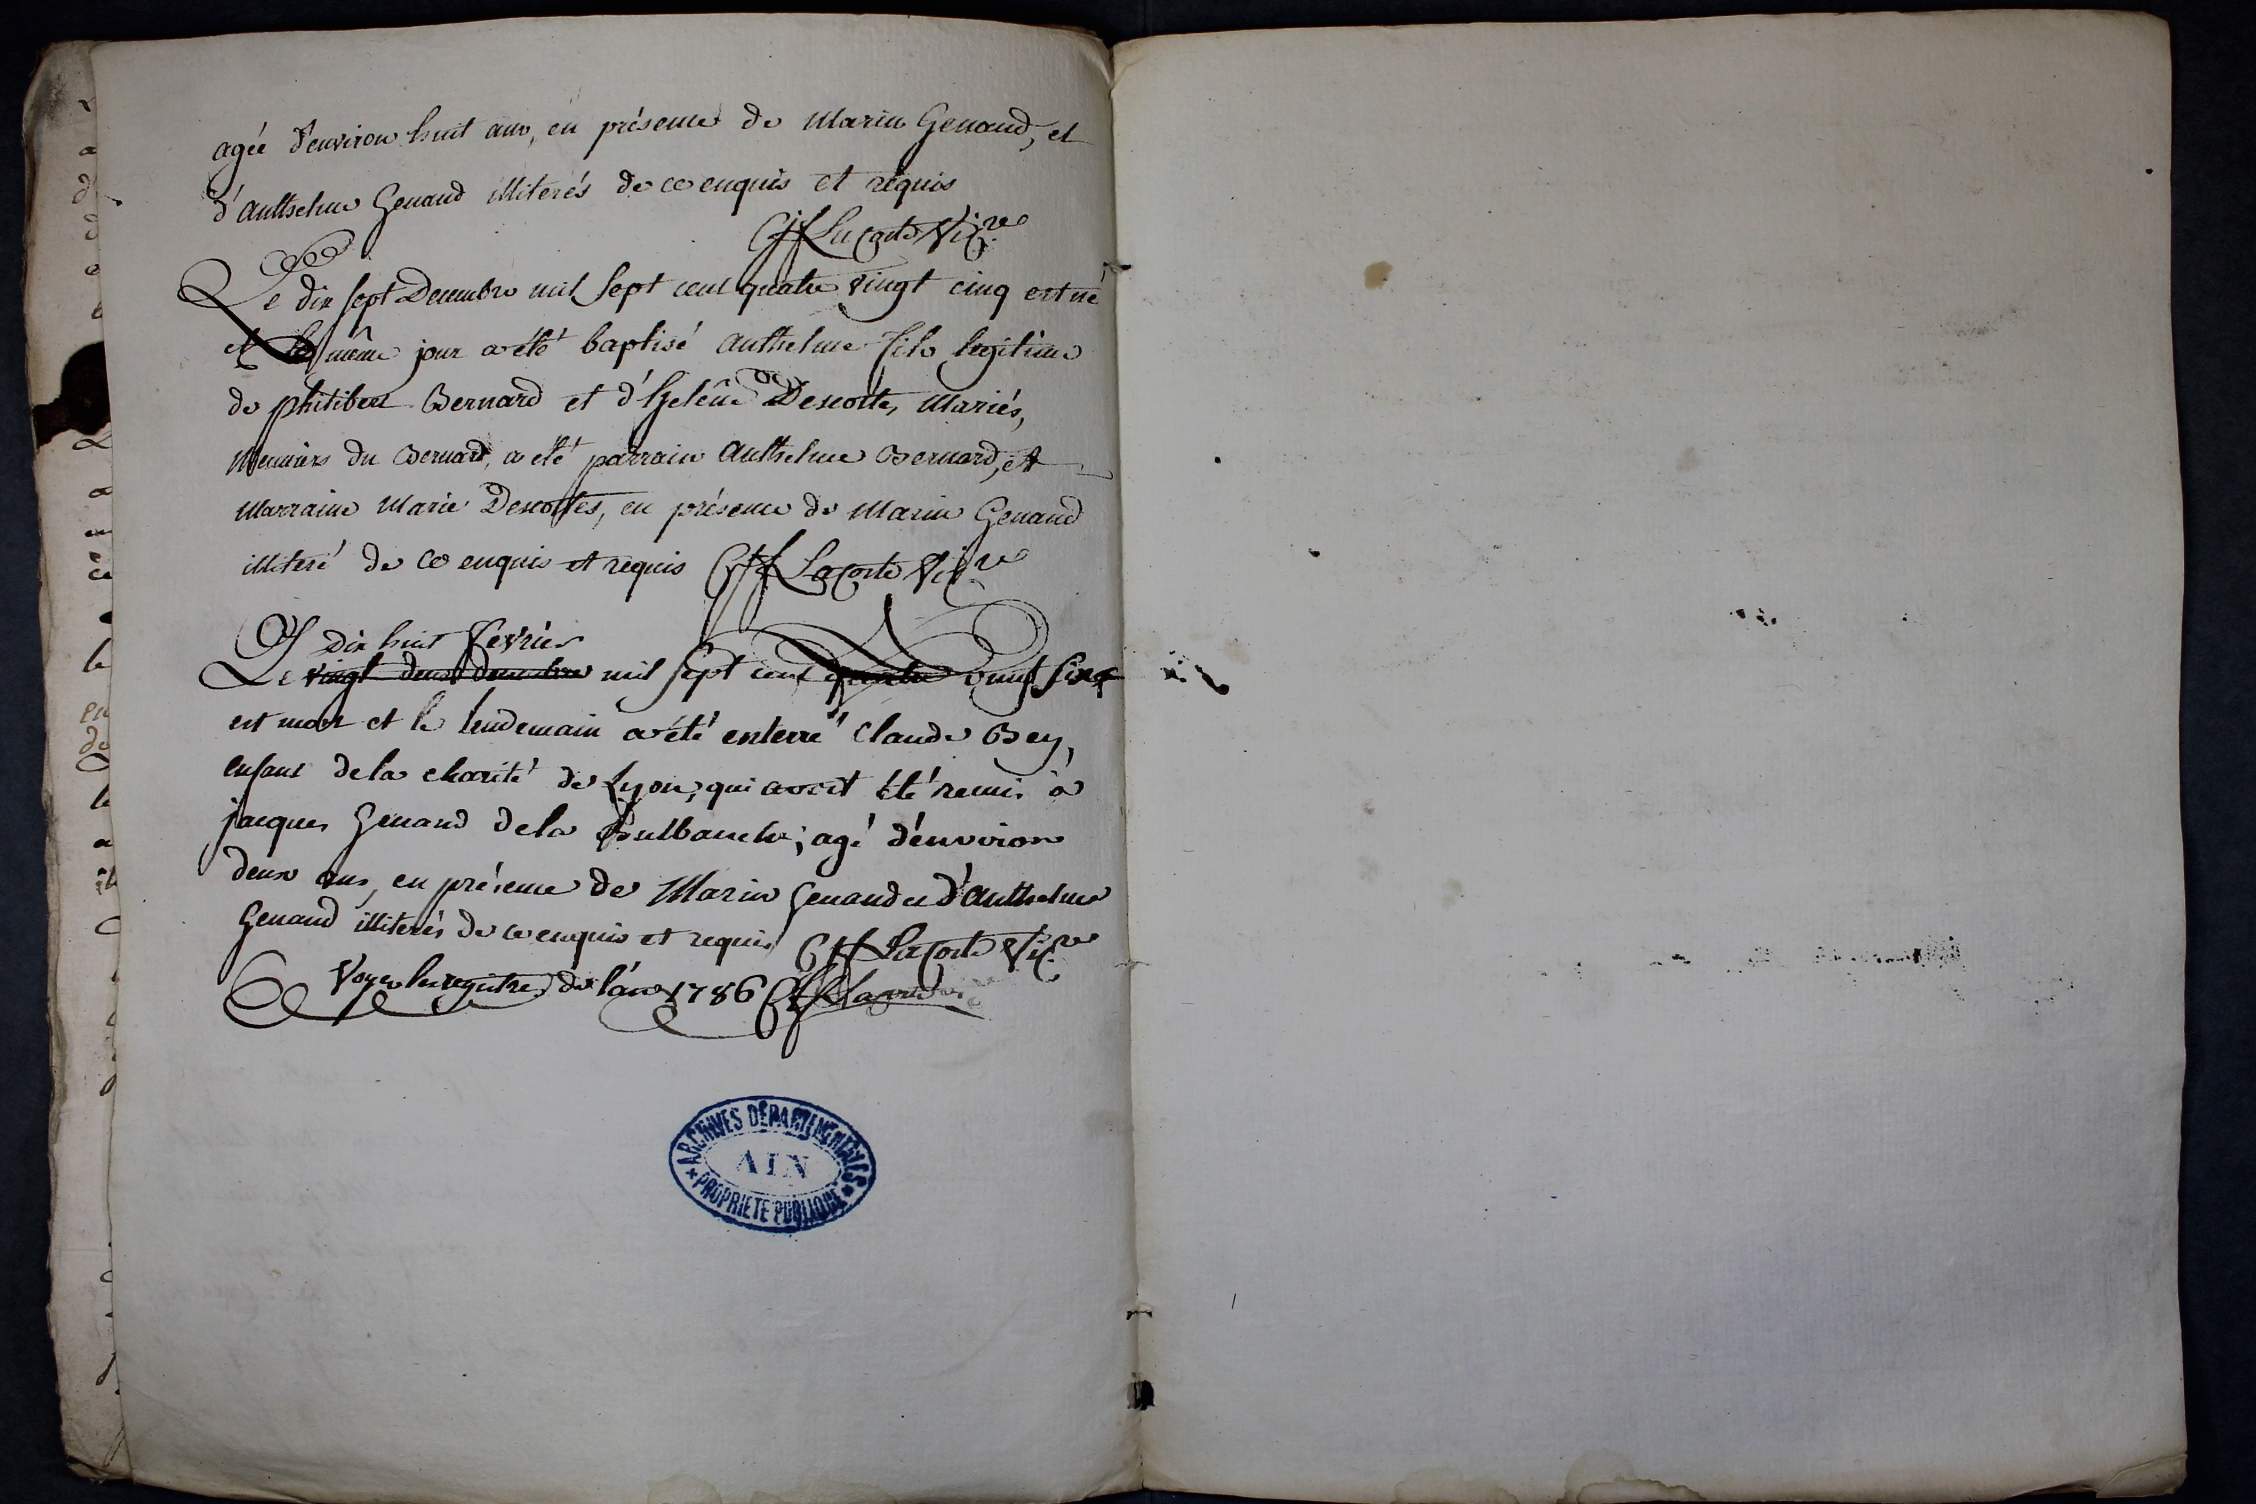 agée d'environ huit ans, en présence de Marin Genaud, et
d'Anthelme Genaud illiterés de ce enquis et requis
Lacoste Vic.re
Le dix sept Decembre mil sept cent quatre vingt cinq est né
et le même jour a été baptisé Anthelme fils legitime
de philibert Bernard et d'helêne Descotes, Mariés,
Meuniers du Bernard, a été parrain Anthelme Bernard, et
Marraine Marie Descottes, en présence de Marin Genaud
illiteré de ce enquis et requis Lacoste Vic.re
Dix huit Fevrier
Le vingt deux decembre mil sept cent quatre vingt six
est mort et le lendemain a été enterré Claude Bey,
enfant de la charité de Lyon, qui avoit été remis à
jacques Genaud de la ; agé d'environ
deux ans, en présence de Marin Genaud et d'Anthelme
Genaud illiterés de ce enquis et requis Lacoste Vic.re
Voyez le registre de l'an 1786
ARCHIVES DÉPARTEMENTALES
AIN
PROPRIETE PUBLIQUE